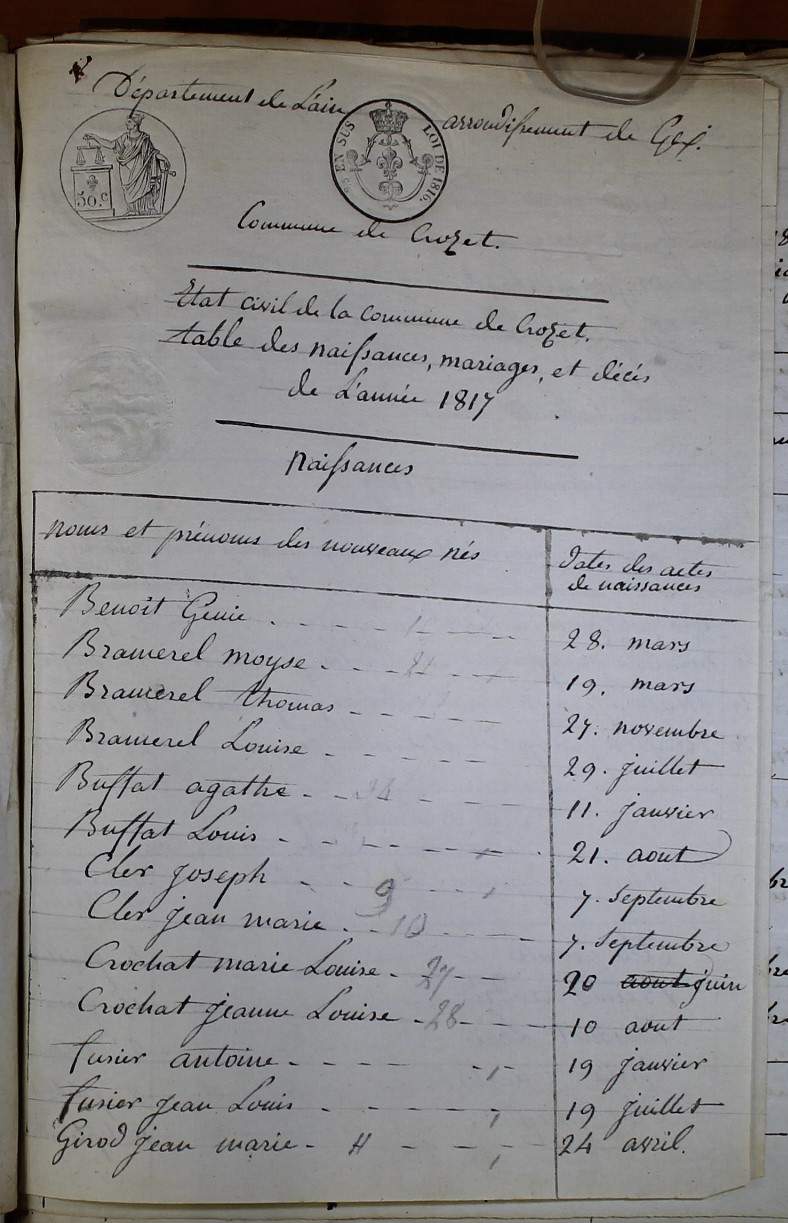 Département de L'ain arrondissement de Gex.
50.c
EN SUS LOI DE 1816.
Commune de Crozet.
Etat civil de la commune de Crozet.
table des naissances, mariages, et décès
de L'année 1817
Naissances
noms et prénoms des nouveaux nés
Dates des actes
de naissances
Benoît Génie 28. mars
Bramerel moyse 19. mars
Bramerel thomas 27. novembre
Bramerel Louise 29. juillet
Buffat agathe 11. janvier
Buffat Louis 21. aout
Cler joseph 9 7. Septembre
Cler jean marie 10 7. Septembre
Crochat marie Louise 27 20 aout juin
Crochat jeanne Louise 28 10 aout
fusier antoine 19 janvier
fusier jean Louis 19 juillet
Girod jean marie 24 avril.